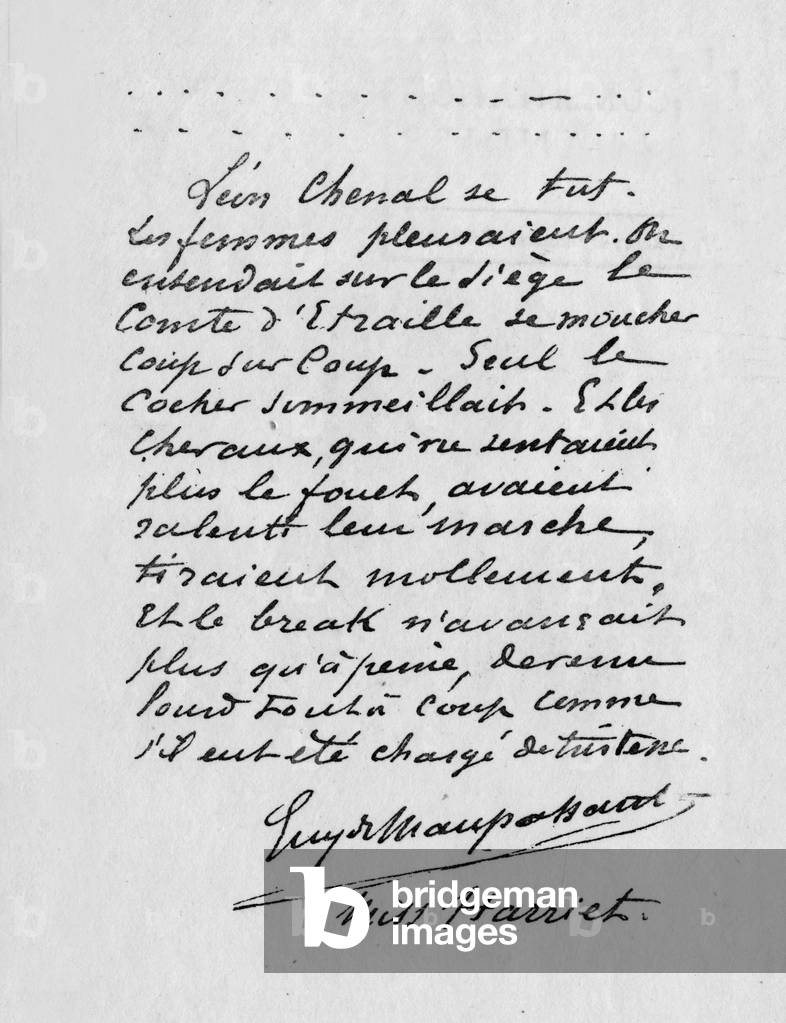 . . . . . . . . . . — . . .
. . . . . . . . . . . . . .
Léon Chenal se tut.
Les femmes pleuraient. On
entendait sur le siège le
Comte d'Etraille se moucher
coup sur coup. Seul le
cocher sommeillait. Et les
chevaux, qui ne sentaient
plus le fouet, avaient
ralenti leur marche,
tiraient mollement.
Et le break n'avançait
plus qu'à peine, devenu
lourd tout à coup comme
s'il eut été chargé de tristesse.
Guy de Maupassant
Miss Harriet.
b bridgeman
images